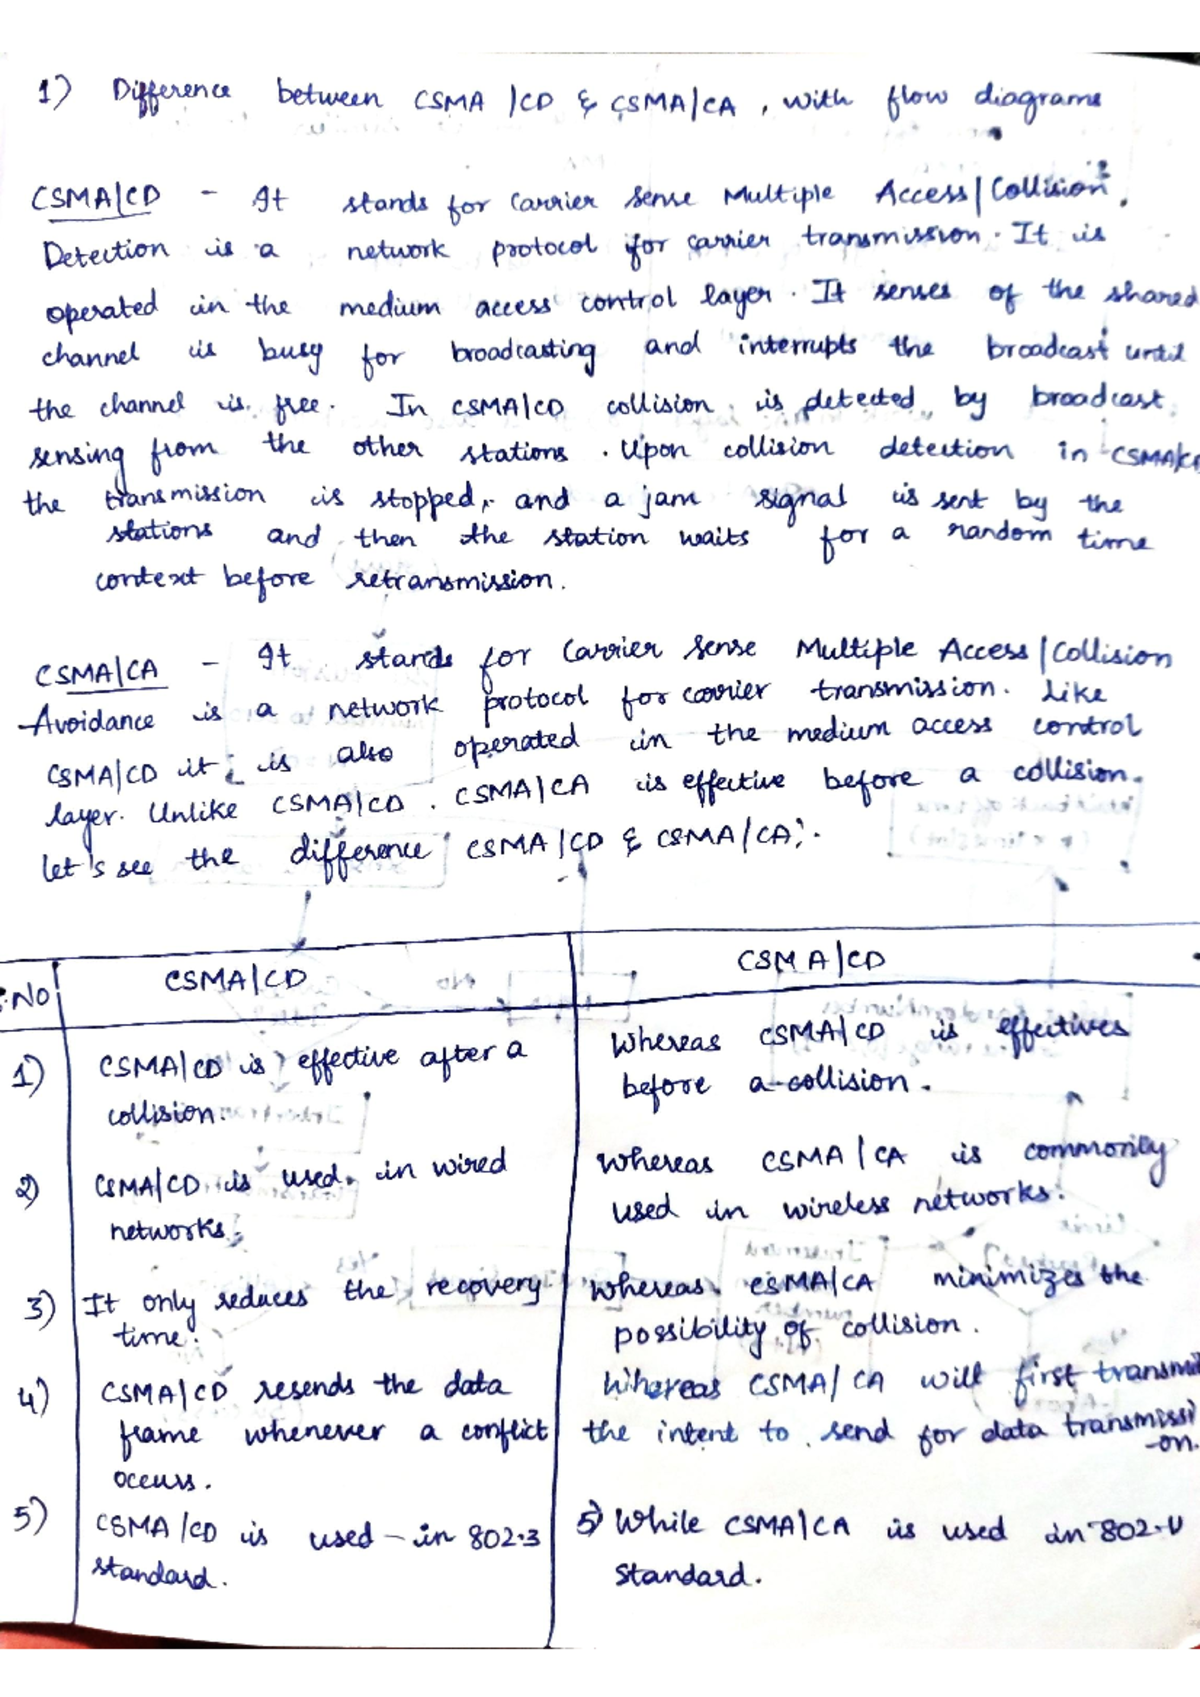 1) Difference between CSMA/CD & CSMA/CA, with flow diagrams
CSMA/CD - It stands for Carrier Sense Multiple Access/Collision
Detection is a network protocol for carrier transmission. It is
operated in the medium access control layer. It senses of the shared
channel is busy for broadcasting and interrupts the broadcast until
the channel is free. In CSMA/CD collision is detected by broadcast
sensing from the other stations. Upon collision detection in CSMA/C
the transmission is stopped, and a jam signal is sent by the
stations and then the station waits for a random time
context before retransmission.
CSMA/CA - It stands for Carrier Sense Multiple Access/Collision
Avoidance is a network protocol for carrier transmission. Like
CSMA/CD it is also operated in the medium access control
layer. Unlike CSMA/CD. CSMA/CA is effective before a collision.
let's see the difference CSMA/CD & CSMA/CA:.
S.NO CSMA/CD CSMA/CD
1) CSMA/CD is effective after a Whereas CSMA/CD is effectives
collision. before a collision.
2) CSMA/CD is used in wired Whereas CSMA/CA is commonly
networks. used in wireless networks.
3) It only reduces the recovery Whereas CSMA/CA minimizes the
time. possibility of collision.
4) CSMA/CD resends the data Whereas CSMA/CA will first transmit
frame whenever a conflict the intent to send for data transmissi
occurs. -on.
5) CSMA/CD is used in 802.3 5) While CSMA/CA is used in 802.11
standard. standard.